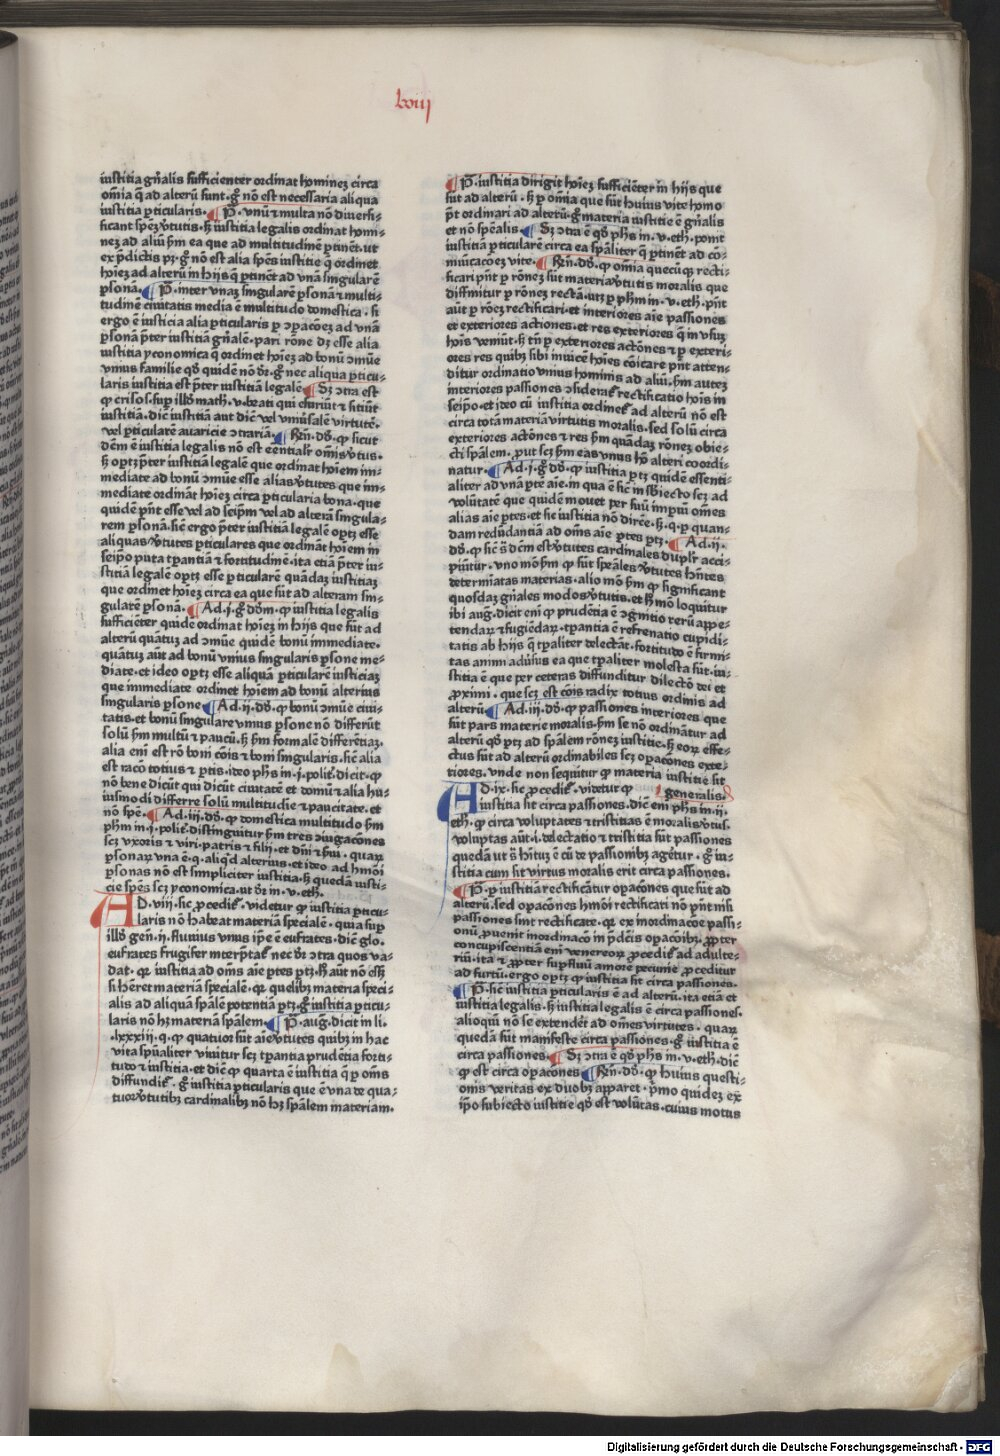 lxiij
iustitia gñalis sufficienter ordinat hominez circa
om̃ia q̃ ad alterũ sunt· g̊ nõ est necessaria aliqua
iustitia ꝑticularis· P̃· vnũ ⁊ multa nõ diuersi-
ficant spẽz v̓tutis· sꝫ iustitia legalis ordinat homi-
nez ad aliũ ẜm ea que ad multitudinẽ ꝑtinẽt· ut
ex p̃dictis pꝫ· g̊ nõ est alia spẽs iustitie q̃ ordinet
hoĩez ad alterũ in hijs q̃ ꝑtinẽt ad vnã singularẽ
ꝑsonã· P̃· inter vnaꝫ singularẽ ꝑsonã ⁊ multi-
tudinẽ ciuitatis media ẽ multitudo domestica· si
ergo ẽ iusticia alia ꝑticularis ꝑ ↄpac̃oez ad vnã
ꝑsonã p̃ter iustitiã gñalẽ· pari rõne dꝫ esse alia
iustitia yconomica q̃ ordinet hoĩez ad bonũ ↄmũe
vnius familie qd̓ quidẽ nõ dr̃· g̊ nec aliqua ꝑticu-
laris iustitia est p̃ter iustitiã legalẽ Sꝫ ↄtra est
ꝙ crisos· suꝑ illd̓ math· v· beati qui esuriũt ⁊ sitiũt
iustitiã· dic̃ iustitiã aut dic̃ vel vniũsalẽ virtutẽ·
vel ꝑticularẽ auaricie ↄtrariã· Rñ· dd̓· ꝙ sicut
dc̃m ẽ iustitia legalis nõ est eẽntialr̃ om̃is v̓tus·
sꝫ optꝫ p̃ter iustitiã legalẽ que ordinat hoĩem im-
mediate ad bonũ ↄmũe esse alias v̓tutes que im-
mediate ordinãt hoĩez circa ꝑticularia bona· que
quidẽ pñt esse vel ad seip̃m vel ad alterã singula-
rem ꝑsonã· sic̃ ergo p̃ter iustitiã legalẽ optꝫ esse
aliquas v̓tutes ꝑticulares que ordinãt hoĩem in
seip̃o puta tꝑantiã ⁊ fortitudinẽ· ita etiã p̃ter iu-
stitiã legalẽ optꝫ esse ꝑticularẽ quãdaꝫ iustitiaꝫ
que ordinet hoĩez circa ea que sũt ad alteram sin-
gularẽ ꝑsonã· Ad·j·g̊ dd̓m· ꝙ iustitia legalis
sufficiẽter quidẽ ordinat hoĩez in hijs que sũt ad
alterũ quãtuꝫ ad ↄmũe quidẽ bonũ immediate·
quãtuꝫ aũt ad bonũ vnius singularis ꝑsone me-
diate· et ideo optꝫ esse aliquã ꝑticularẽ iusticiaꝫ
que immediate ordinet hoĩem ad bonũ alterius
singularis ꝑsone Ad·ij·dd̓· ꝙ bonũ ↄmũe ciui-
tatis· et bonũ singulare vnius ꝑsone nõ differũt
solũ ẜm multũ ⁊ paucũ· sꝫ ẜm formalẽ differẽtiaꝫ·
alia eni est rõ boni cõis ⁊ boni singularis· sic̃ alia
est racõ totius ⁊ ꝑtis· ideo phs̃ in·j·polit̃·dicit· ꝙ
nõ bene dicũt qui dicũt ciuitatẽ et domũ ⁊ alia hu-
iusmodi differre solũ multitudie ⁊ paucitate· et
nõ spẽ· Ad·iij·dd̓· ꝙ domestica multitudo ẜm
phm̃ in·j·polit̃·distinguitur ẜm tres ↄiugacões
scꝫ vxoris ⁊ viri· patris ⁊ filij· et dñi ⁊ ẜui· quaꝝ
ꝑsonaꝝ vna ẽ·q·aliqd̓ alterius· et ideo ad hmõi
ꝑsonas nõ est simpliciter iustitia· sꝫ quedã iusti-
cie spẽs scꝫ yconomica· ut dr̃· in·v·eth·
AD·viij· sic ꝓcedit̃· videtur ꝙ iustitia ꝑticu-
laris nõ habeat materiã specialẽ· quia suꝑ
illd̓ geñ·ij·fluuius vnus ip̃e ẽ eufrates· dic̃ glo·
eufrates frugifer interp̃tat̃ nec dr̃ ↄtra quos va-
dat· qꝛ iustitia ad oms̃ aĩe ꝑtes ꝑtꝫ· hͦ aũt nõ esꝫ
si hẽret materiã specialẽ· qꝛ quelibꝫ materia speci-
alis ad aliquã sp̃alẽ potentiã ꝑtꝫ· g̊ iustitia ꝑticu-
laris nõ hꝫ materiã sp̃alem P̃· aug̃·dicit in li·
lxxxiij·q·ꝙ quatuor sũt aĩe v̓tutes quibꝫ in hac
vita sp̃ualiter viuitur scꝫ tꝑantia prudẽtia forti-
tudo ⁊ iustitia· et dic̃ ꝙ quarta ẽ iustitia q̃ ꝑ oms̃
diffundit̃· g̊ iustitia ꝑticularis que ẽ vna de qua-
tuor v̓tutibꝫ cardinalibꝫ nõ hꝫ sp̃alem materiam·
P̃· iustitia dirigit hoĩez sufficiẽter in hijs que
sũt ad alterũ· sꝫ ꝑ om̃ia que sũt huius vite homo
põt ordinari ad alterũ· g̊ materia iustitie ẽ gñalis
et nõ spẽalis Sꝫ ↄtra ẽ qd̓ phs̃ in·v·eth·ponit
iustitiã ꝑticularẽ circa ea sp̃aliter q̃ ꝑtinẽt ad cõ-
mũicacoez vite· Rñ· dd̓· ꝙ om̃ia quecũqꝫ recti-
ficari pñt ꝑ rõnez sũt materia v̓tutis moralis que
diffinitur ꝑ rõnez rectã· utꝫ ꝑ phm̃ in·v·eth·pñt
aũt ꝑ rõez rectificari· et interiores aĩe passiones
et exteriores actiones· et res exteriores q̃ in vsuꝫ
hoĩs veniũt· sꝫ tñ ꝑ exteriores actões ⁊ ꝑ exteri-
ores res quibꝫ sibi inuicẽ hoĩes cõicare pñt atten-
ditur ordinatio vnius hominis ad aliũ· ẜm autez
interiores passiones ↄsiderat̃ rectificatio hoĩs in
seip̃o· et ideo cũ iustitia ordinet̃ ad alterũ nõ est
circa totã materiã virtutis moralis· sed solũ circa
exteriores actões ⁊ res ẜm quãdaꝫ rõnez obie-
cti sp̃alem· ꝓut scꝫ ẜm eas vnus hõ alteri coordi-
natur· Ad·j·g̊ dd̓· ꝙ iustitia ꝑtꝫ quidẽ essenti-
aliter ad vnã ꝑte aĩe· in qua ẽ sic̃ in sb̃iecto scꝫ ad
volũtatẽ que quidẽ mouet per suũ imꝑiũ om̃es
alias aĩe ꝑtes· et sic iustitia nõ dirc̃e· sꝫ·q·ꝑ quan-
dam redũdantiã ad oms̃ aĩe ꝑtes ꝑtꝫ· Ad·ij·
dd̓· ꝙ sic̃ s̃ dc̃m est v̓tutes cardinales duplr̃ acci-
piũtur· vno mõ ẜm ꝙ sũt spẽales v̓tutes hñtes
determĩatas materias· alio mõ ẜm ꝙ significant
quosdaꝫ gñales modos v̓tutis· et ẜm hͦ loquitur
ibi aug· dicit eni ꝙ prudẽtia ẽ ↄgnitio rerũ appe-
tendaꝝ ⁊ fugiẽdaꝝ· tꝑantia ẽ refrenatio cupidi-
tatis ab hijs q̃ tꝑaliter delectãt· fortitudo ẽ firmi-
tas animi adũsus ea que tꝑaliter molesta sũt· iu-
stitia ẽ que per ceteras diffunditur dilectõ dei et
ꝓximi· que scꝫ est cõis radix totius ordinis ad
alterũ Ad·iij·dd̓· ꝙ passiones interiores que
sũt pars materie moralis· ẜm se nõ ordinãtur ad
alterũ qd̓ ꝑtꝫ ad sp̃alem rõnez iustitie· sꝫ eoꝝ effe-
ctus sũt ad alterũ ordinabiles scꝫ opac̃ones exte-
riores· vnde non sequitur ꝙ materia iustitie sit
generalis·
AD·ix·sic ꝓcedit̃· videtur ꝙ
iustitia sit circa passiones· dic̃ eni phs̃ in·ij·
eth·ꝙ circa voluptates ⁊ tristitias ẽ moralis v̓tus·
voluptas aũt·i·delectatio ⁊ tristitia sũt passiones
quedã ut s̃ hituꝫ ẽ cũ de passionibꝫ agẽtur· g̊ iu-
stitia cum sit virtus moralis erit circa passiones·
P̃· ꝑ iustitiã rectificãtur opac̃ones que sũt ad
alterũ· sed opac̃ones hmõi rectificari nõ pñt nisi
passiones sint rectificate· qꝛ ex inordinac̃oe passi-
onũ ꝓuenit inordinacõ in p̃dcis opac̃oibꝫ· ꝓpter
concupiscentiã eni venereoꝝ ꝓcedit̃ ad adulte-
riũ· ita ⁊ ꝓpter suꝑfluũ amorẽ pecunie ꝓceditur
ad furtũ· ergo optꝫ ꝙ iustitia sit circa passiones·
P̃· sic̃ iustitia ꝑticularis ẽ ad alterũ· ita etiã et
iustitia legalis· sꝫ iustitia legalis ẽ circa passiones·
alioqui nõ se extendet ad om̃es virtutes· quaꝝ
quedã sũt manifeste circa passiones· g̊ iustitia ẽ
circa passiones Sꝫ ↄtra ẽ qd̓ phs̃ in·v·eth·dic̃
ꝙ est circa opac̃ones Rñ· dd̓· ꝙ huius questi-
onis veritas ex duobꝫ apparet· p̃mo quidez ex
ip̃o subiecto iustitie qd̓ est volũtas· cuius motus
Digitalisierung gefördert durch die Deutsche Forschungsgemeinschaft - DFG